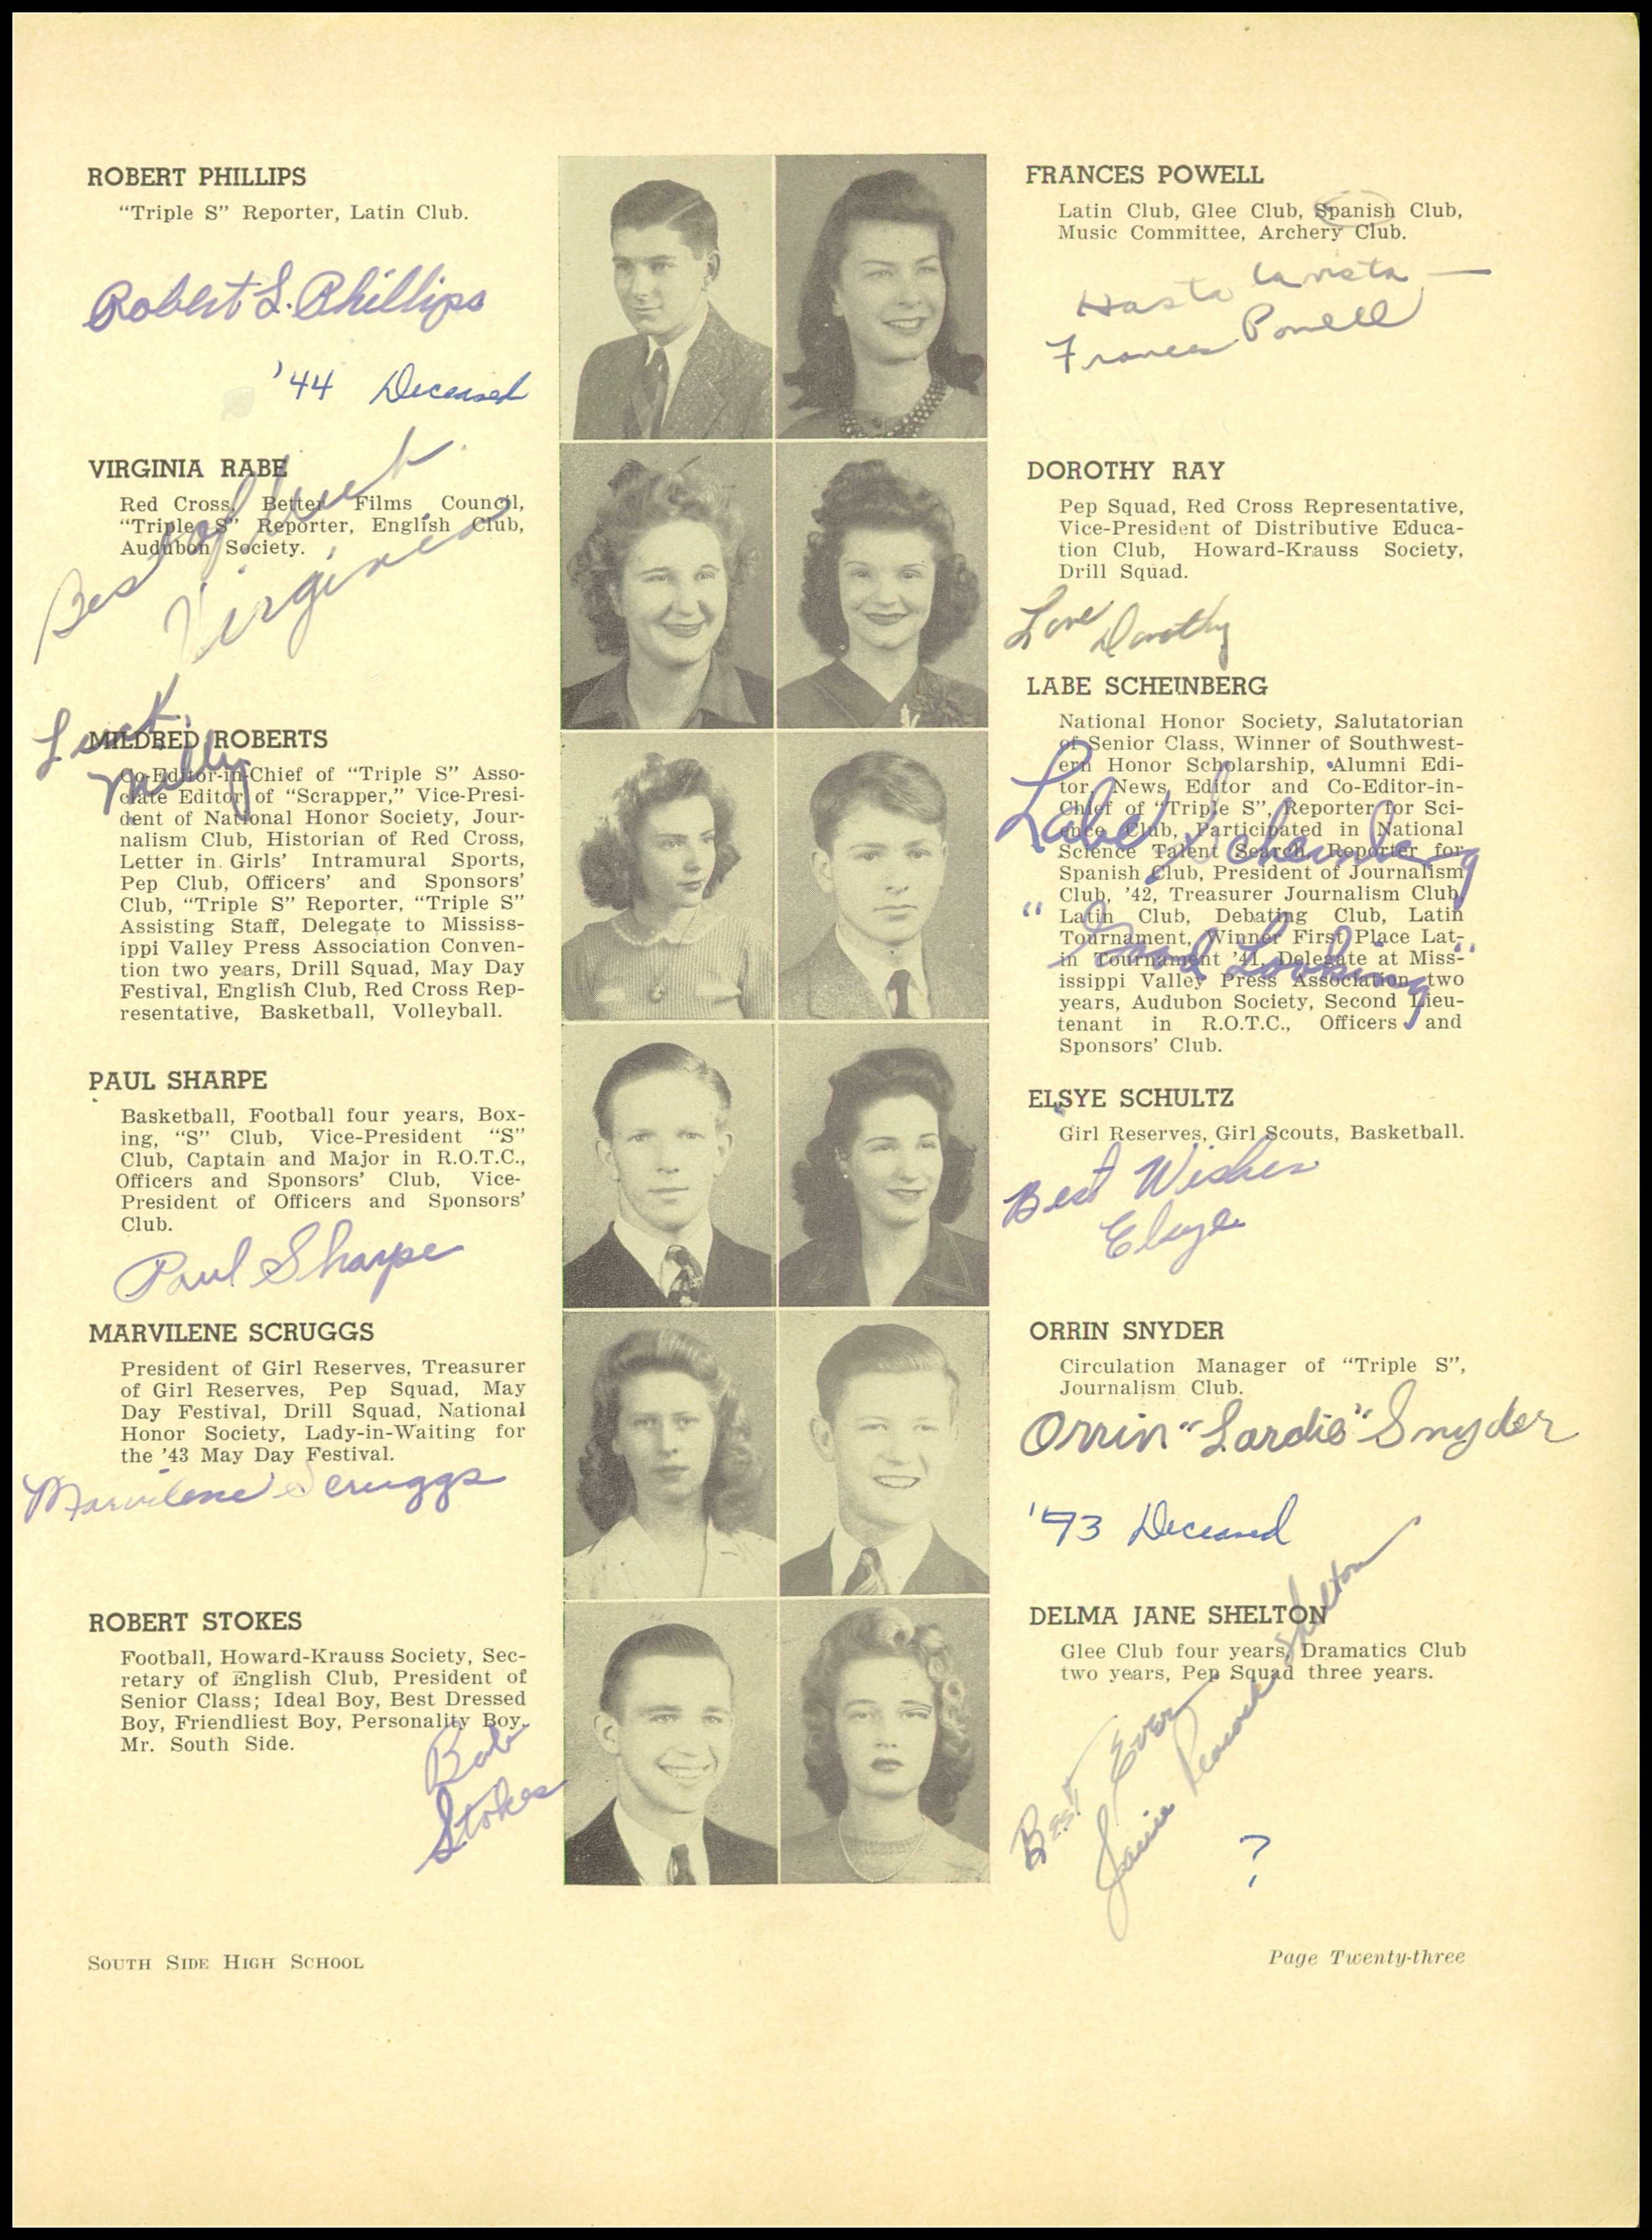 ROBERT PHILLIPS
"Triple S" Reporter, Latin Club.
Robert L. Phillips
'44 Deceased
VIRGINIA RABE
Red Cross, Better Films Council,
"Triple S" Reporter, English Club,
Audubon Society.
Best of luck
Virginia
Luck,
Milly
MILDRED ROBERTS
Co-Editor-in-Chief of "Triple S" Asso-
ciate Editor of "Scrapper," Vice-Presi-
dent of National Honor Society, Jour-
nalism Club, Historian of Red Cross,
Letter in Girls' Intramural Sports,
Pep Club, Officers' and Sponsors'
Club, "Triple S" Reporter, "Triple S"
Assisting Staff, Delegate to Mississ-
ippi Valley Press Association Conven-
tion two years, Drill Squad, May Day
Festival, English Club, Red Cross Rep-
resentative, Basketball, Volleyball.
PAUL SHARPE
Basketball, Football four years, Box-
ing, "S" Club, Vice-President "S"
Club, Captain and Major in R.O.T.C.,
Officers and Sponsors' Club, Vice-
President of Officers and Sponsors'
Club.
Paul Sharpe
MARVILENE SCRUGGS
President of Girl Reserves, Treasurer
of Girl Reserves, Pep Squad, May
Day Festival, Drill Squad, National
Honor Society, Lady-in-Waiting for
the '43 May Day Festival.
Marvilene Scruggs
ROBERT STOKES
Football, Howard-Krauss Society, Sec-
retary of English Club, President of
Senior Class; Ideal Boy, Best Dressed
Boy, Friendliest Boy, Personality Boy,
Mr. South Side.
Bob
Stokes
FRANCES POWELL
Latin Club, Glee Club, Spanish Club,
Music Committee, Archery Club.
Hasta la vista —
Frances Powell
DOROTHY RAY
Pep Squad, Red Cross Representative,
Vice-President of Distributive Educa-
tion Club, Howard-Krauss Society,
Drill Squad.
Love Dorothy
LABE SCHEINBERG
National Honor Society, Salutatorian
of Senior Class, Winner of Southwest-
ern Honor Scholarship, Alumni Edi-
tor, News Editor and Co-Editor-in-
Chief of "Triple S", Reporter for Sci-
ence Club, Participated in National
Science Talent Search, Reporter for
Spanish Club, President of Journalism
Club, '42, Treasurer Journalism Club,
Latin Club, Debating Club, Latin
Tournament, Winner First Place Lat-
in Tournament '41, Delegate at Miss-
issippi Valley Press Association two
years, Audubon Society, Second Lieu-
tenant in R.O.T.C., Officers and
Sponsors' Club.
Labe Scheinberg
"Good Looking"
ELSYE SCHULTZ
Girl Reserves, Girl Scouts, Basketball.
Best Wishes
Elsye
ORRIN SNYDER
Circulation Manager of "Triple S",
Journalism Club.
Orrin "Lardie" Snyder
'93 Deceased
DELMA JANE SHELTON
Glee Club four years, Dramatics Club
two years, Pep Squad three years.
Best Ever
Shelton
?
SOUTH SIDE HIGH SCHOOL
Page Twenty-three